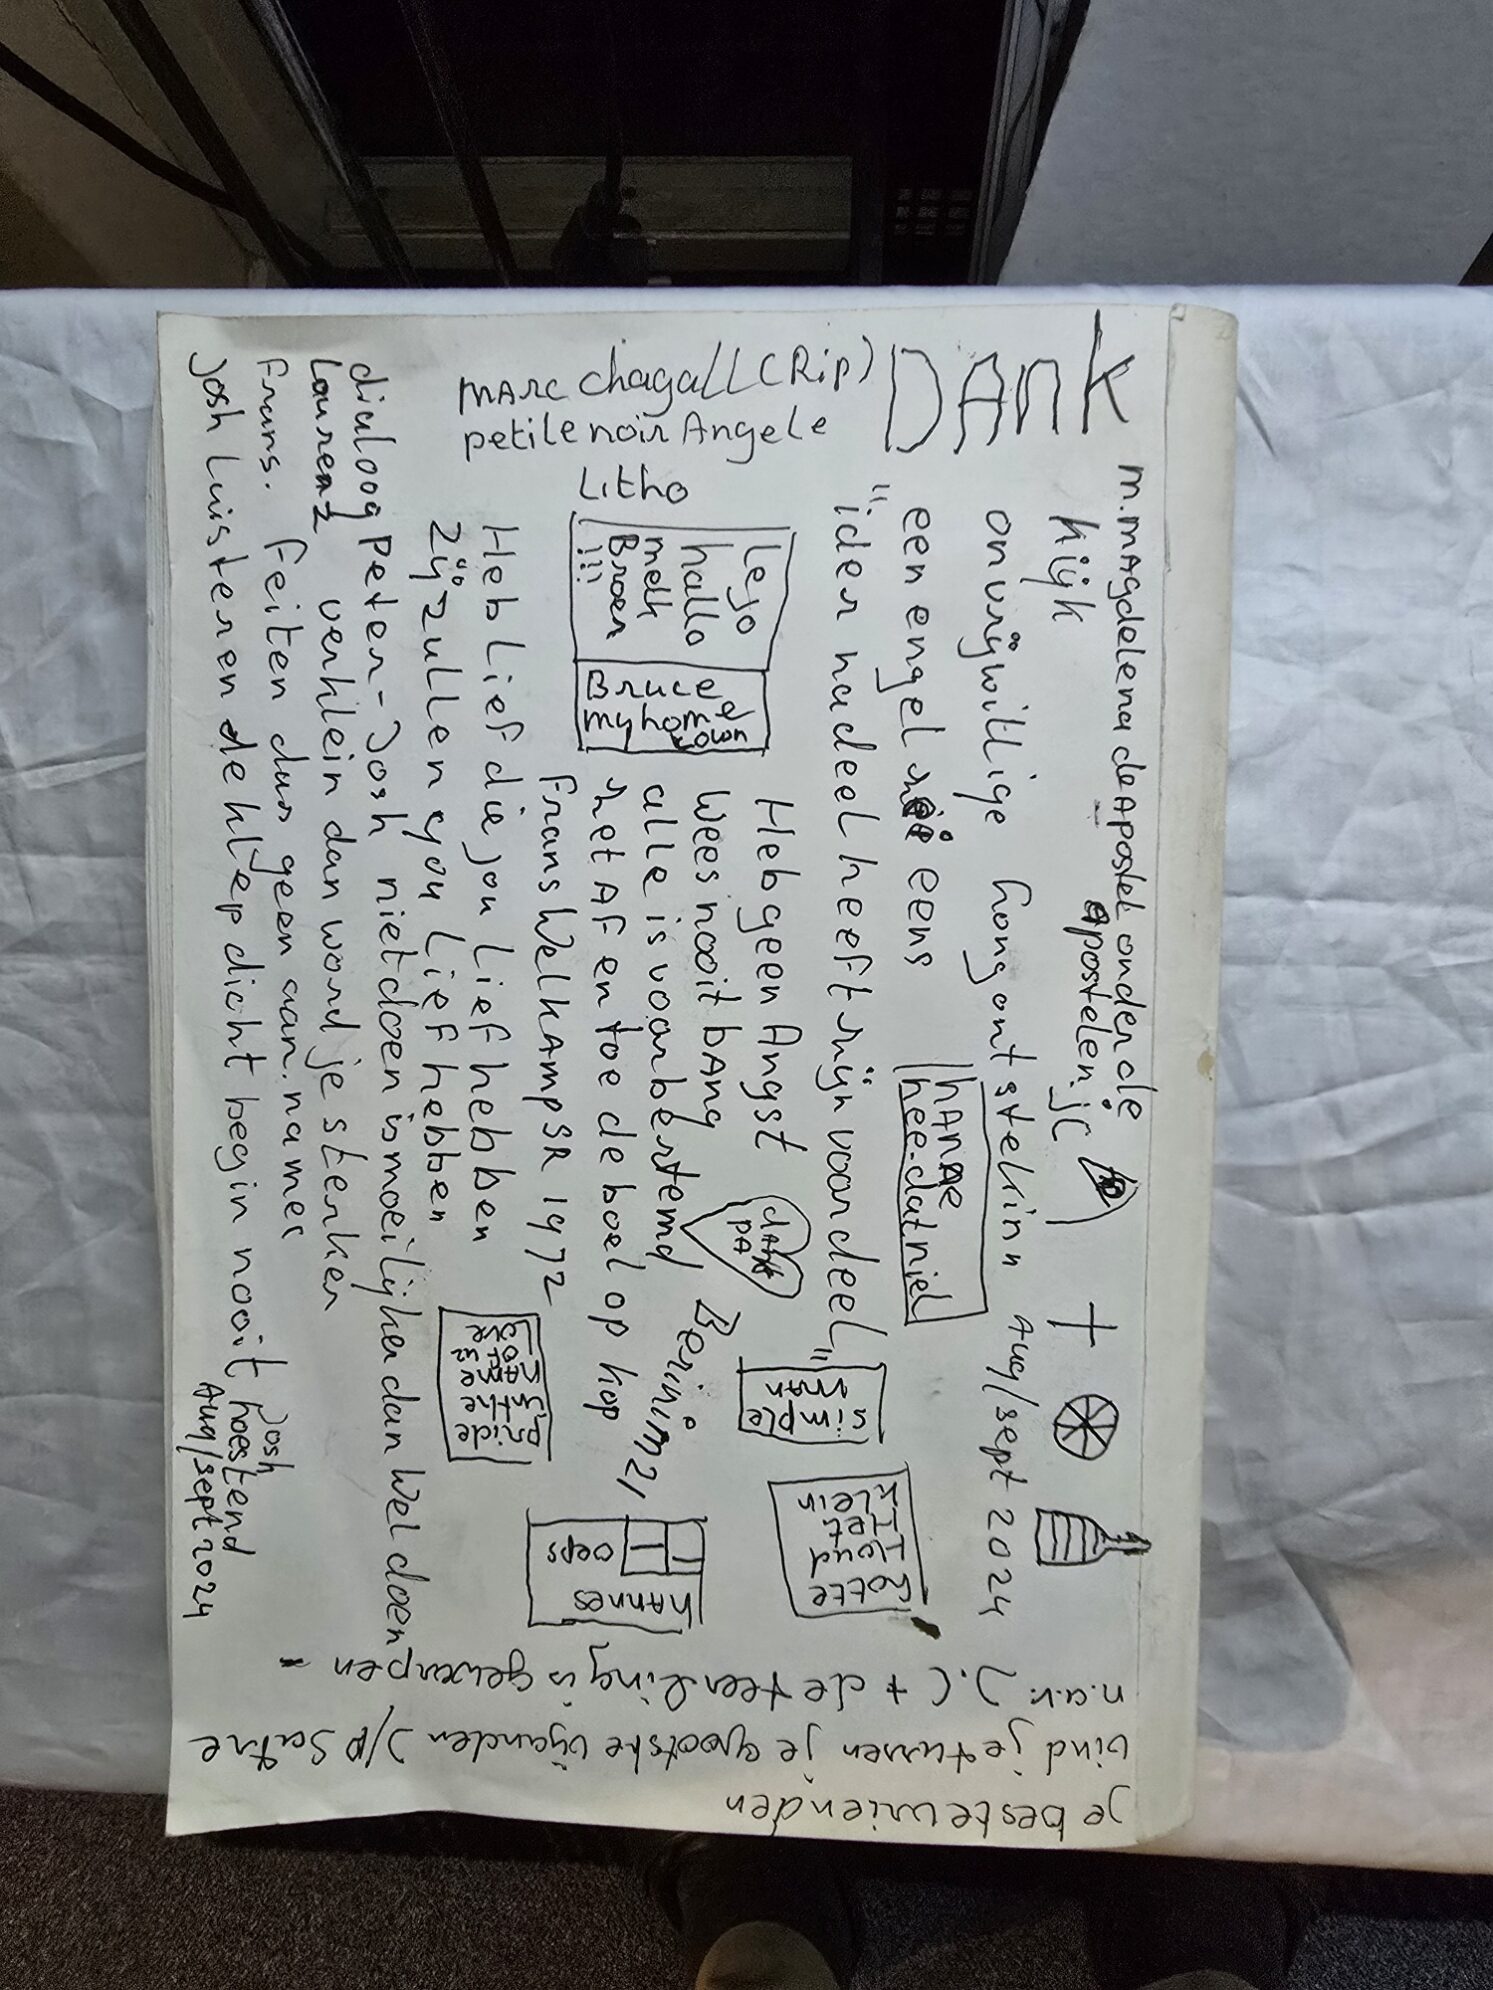 m.mAgdelena deApostel onder de
Apostelen. jc
DAnk
kijk
onvrijwillige longontstekinn Aug/sept 2024
een engel eens
hee.datniel
"ider nadeel heeft zijn voordeel"
mARC chagall (Rip)
petite noir Angele
Litho
Lejo
hallo
melk
Broer
!!!
Bruce
my home
town
Heb geen Angst
Wees nooit bAng
alle is voorbestemd
zet Af en toe de boel op kop
Frans WelkAmp SR 1972
dAnk
pA
Benini m21
simple
mAn
Lotte
Houd
Het
KLein
hAnnes
oeps
pride
in the
nAme
of
Love
Heb Lief die jou Lief hebben
Zij zullen you Lief hebben
dialoog Peter-Josh niet doen is moeilijker dan Wel doen
Laurenz verklein dan word je sterker
Frans. Feiten dus geen aan.names
Josh Luisteren de klep dicht begin nooit
Josh
hoestend
Aug/sept 2024
n.a.v. J.C + de teerling is geworpen -
vind je tussen je grootste vijanden J/P Satre
je beste vrienden